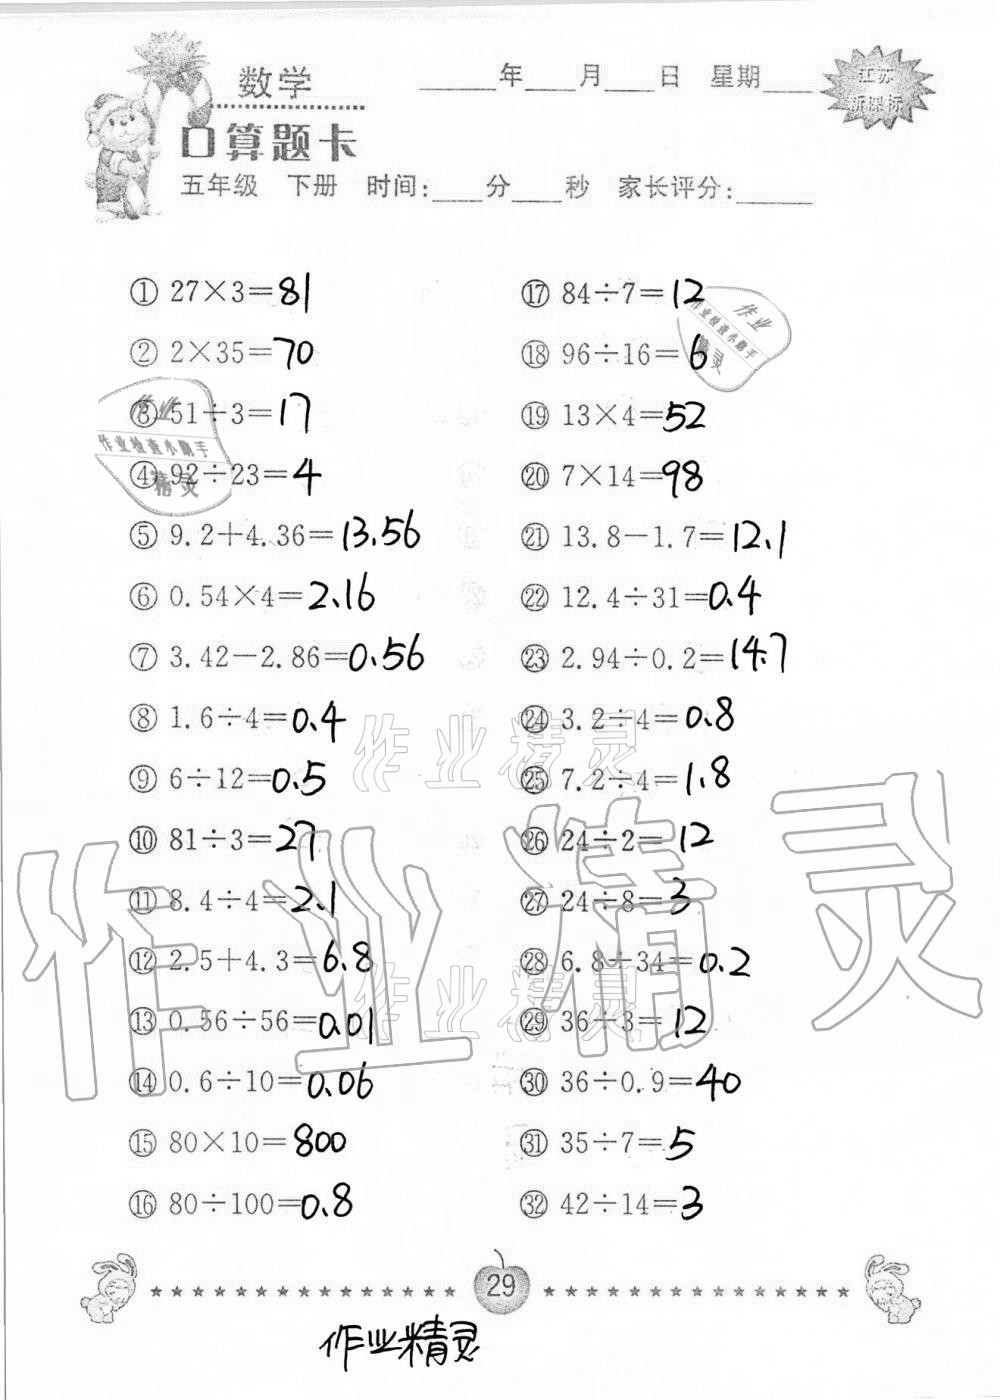 数学
____年____月____日 星期____
江苏
新课标
口算题卡
五年级 下册 时间:____分____秒 家长评分:____
① 27×3=81
② 2×35=70
③ 51÷3=17
④ 92÷23=4
⑤ 9.2+4.36=13.56
⑥ 0.54×4=2.16
⑦ 3.42-2.86=0.56
⑧ 1.6÷4=0.4
⑨ 6÷12=0.5
⑩ 81÷3=27
⑪ 8.4÷4=2.1
⑫ 2.5+4.3=6.8
⑬ 0.56÷56=0.01
⑭ 0.6÷10=0.06
⑮ 80×10=800
⑯ 80÷100=0.8
⑰ 84÷7=12
⑱ 96÷16=6
⑲ 13×4=52
⑳ 7×14=98
㉑ 13.8-1.7=12.1
㉒ 12.4÷31=0.4
㉓ 2.94÷0.2=14.7
㉔ 3.2÷4=0.8
㉕ 7.2÷4=1.8
㉖ 24÷2=12
㉗ 24÷8=3
㉘ 6.8÷34=0.2
㉙ 36÷3=12
㉚ 36÷0.9=40
㉛ 35÷7=5
㉜ 42÷14=3
作业
作业检查小助手
精灵
作业
作业检查小助手
精灵
作业精灵
作业精灵
作业精灵
29
作业精灵